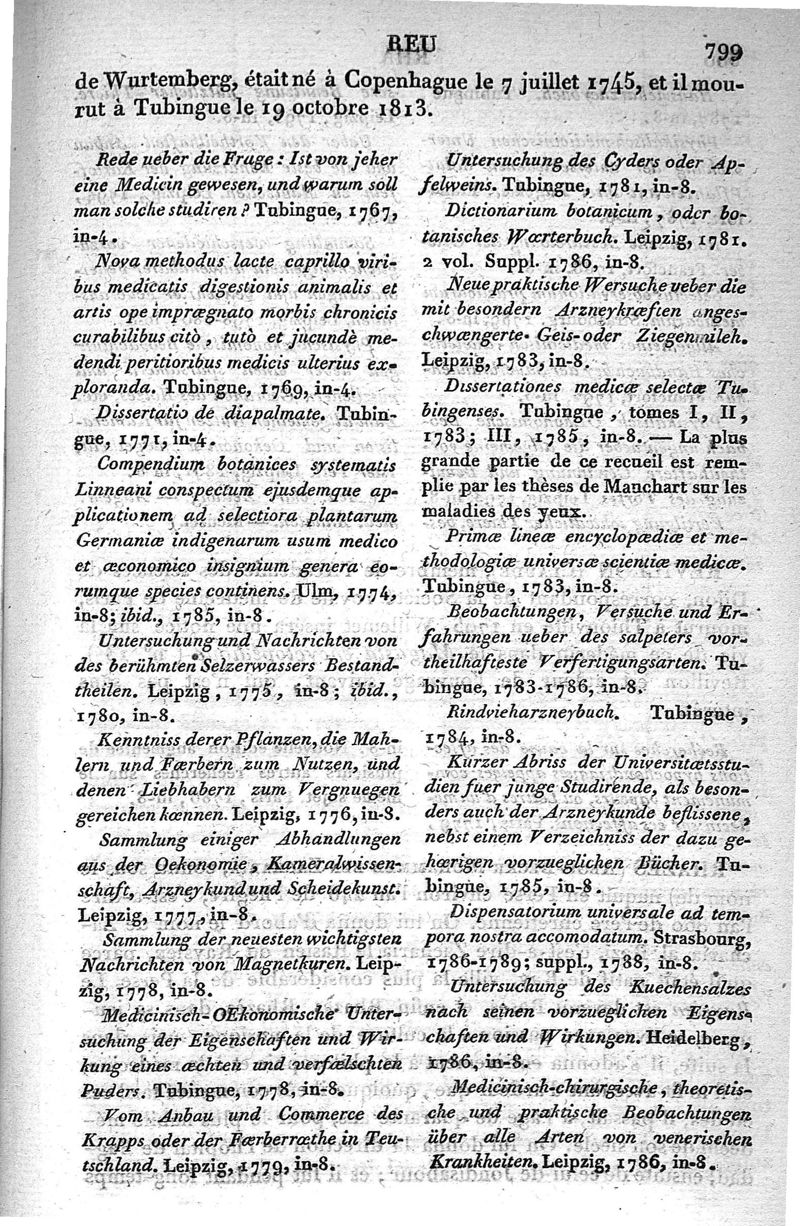 REU
799
de Wurtemberg, était né à Copenhague le 7 juillet 1745, et il mou-
rut à Tubingue le 19 octobre 1813.
Rede ueber die Frage : Ist von jeher
eine Medicin gewesen, und warum soll
man solche studiren ? Tubingue, 1767,
in-4.
Nova methodus lacte caprillo viri-
bus medicatis digestionis animalis et
artis ope imprægnato morbis chronicis
curabilibus citò, tutò et jucundè me-
dendi peritioribus medicis ulterius ex-
ploranda. Tubingue, 1769, in-4.
Dissertatio de diapalmate. Tubin-
gue, 1771, in-4.
Compendium botanices systematis
Linneani conspectum ejusdemque ap-
plicationem ad selectiora plantarum
Germaniæ indigenarum usum medico
et œconomico insignium genera eo-
rumque species continens. Ulm, 1774,
in-8; ibid., 1785, in-8.
Untersuchung und Nachrichten von
des berühmten Selzerwassers Bestand-
theilen. Leipzig, 1775, in-8; ibid.,
1780, in-8.
Kenntniss derer Pflanzen, die Mah-
lern und Færbern zum Nutzen, und
denen Liebhabern zum Vergnuegen
gereichen kœnnen. Leipzig, 1776, in-8.
Sammlung einiger Abhandlungen
aus der Oekonomie, Kameralwissen-
schaft, Arzneykund und Scheidekunst.
Leipzig, 1777, in-8.
Sammlung der neuesten wichtigsten
Nachrichten von Magnetkuren. Leip-
zig, 1778, in-8.
Medicinisch-OEkonomische Unter-
suchung der Eigenschaften und Wir-
kung eines æchten und verfælschten
Puders. Tubingue, 1778, in-8.
Vom Anbau und Commerce des
Krapps oder der Færberrœthe in Teu-
tschland. Leipzig, 1779, in-8.
Untersuchung des Cyders oder Ap-
felweins. Tubingue, 1781, in-8.
Dictionarium botanicum, oder bo-
tanisches Wœrterbuch. Leipzig, 1781.
2 vol. Suppl. 1786, in-8.
Neue praktische Wersuche ueber die
mit besondern Arzneykræften anges-
chwængerte Geis- oder Ziegenmileh.
Leipzig, 1783, in-8.
Dissertationes medicæ selectæ Tu-
bingenses. Tubingue, tomes I, II,
1783; III, 1785, in-8. — La plus
grande partie de ce recueil est rem-
plie par les thèses de Mauchart sur les
maladies des yeux.
Primæ lineæ encyclopædiæ et me-
thodologiæ universæ scientiæ medicæ.
Tubingue, 1783, in-8.
Beobachtungen, Versuche und Er-
fahrungen ueber des salpeters vor-
theilhafteste Verfertigungsarten. Tu-
bingue, 1783-1786, in-8.
Rindvieharzneybuch. Tubingue,
1784, in-8.
Kurzer Abriss der Universitætsstu-
dien fuer junge Studirende, als beson-
ders auch der Arzneykunde beflissene,
nebst einem Verzeichniss der dazu ge-
hœrigen vorzueglichen Bücher. Tu-
bingue, 1785, in-8.
Dispensatorium universale ad tem-
pora nostra accomodatum. Strasbourg,
1786-1789; suppl., 1788, in-8.
Untersuchung des Kuechensalzes
nach seinen vorzueglichen Eigens-
chaften und Wirkungen. Heidelberg,
1786, in-8.
Medicinisch-chirurgische, theoretis-
che und praktische Beobachtungen
über alle Arten von venerischen
Krankheiten. Leipzig, 1786, in-8.